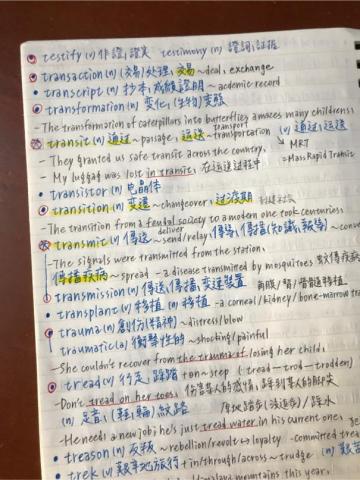 testify (v) 作證,證實 testimony (n) 證詞,証据
transaction (n) (交易)处理,交易 ~deal, exchange
transcript (n) 抄本,成績證明 ~acdemic record
transformation (n) 变化,(生物)变態
-The transformation of caterpillars into butterflies amazes many childrens.
transit (n) 通过 ~passage, 运送 ~transportation (v) 通过,运送
transport
-They granted us safe transit across the country. ↘ MRT
-My luggag was lost in transit, 在运送过程中 =Mass Rapid Transit
transistor (n) 电晶体
transition (n) 变遷 ~changeover, 过渡期
-The transition from a feudal society to a modern one took centuries.
deliver
transmit (v) 傳送 ~send/relay,
-The signals were transmitted from the station.
傳播疾病 ~spread -a disease transmitted by mosquitoes
transmission (n) 傳送,傳播,变速裝置
transplant (v) 移植 (n) 移植 -a corneal/kidney/bone-marrow
trauma (n) 創伤(精神) ~distress/blow
traumatic (a) 衝擊性的 ~shocking/painful
-She couldn't recover from the trauma of losing her child.
tread (v) 行走,踩踏 +on~step (-tread-trod-trodden)
-Don't tread on her toes,
(n) 足音,(鞋,輪)紋路
-He needs a new job; he's just tread water in his current one.
treason (n) 反叛 ~rebellion/revolt ↔ loyalty -committed
trek (v) 艱辛地旅行 +in/through/across ~trudge (n)
mountains this year.